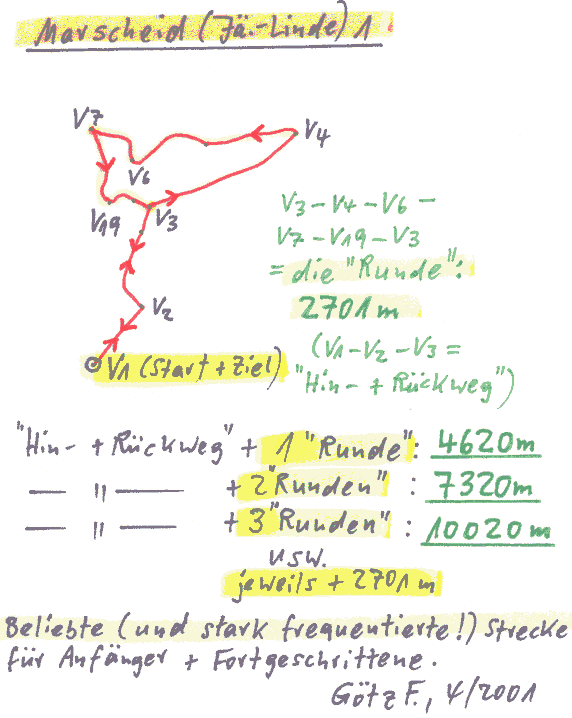 Marscheid (Jä.-Linde) 1
V7
V4
V6
V19
V3
V2
V1 (Start + Ziel)
V3 – V4 – V6 –
V7 – V19 – V3
= die "Runde":
2701m
(V1 – V2 – V3 =
"Hin- + Rückweg")
"Hin- + Rückweg" + 1 "Runde": 4620m
— " — + 2 "Runden" : 7320m
— " — + 3 "Runden" : 10020m
usw.
jeweils + 2701m
Beliebte (und stark frequentierte!) Strecke
für Anfänger + Fortgeschrittene.
Götz F., 4/2001